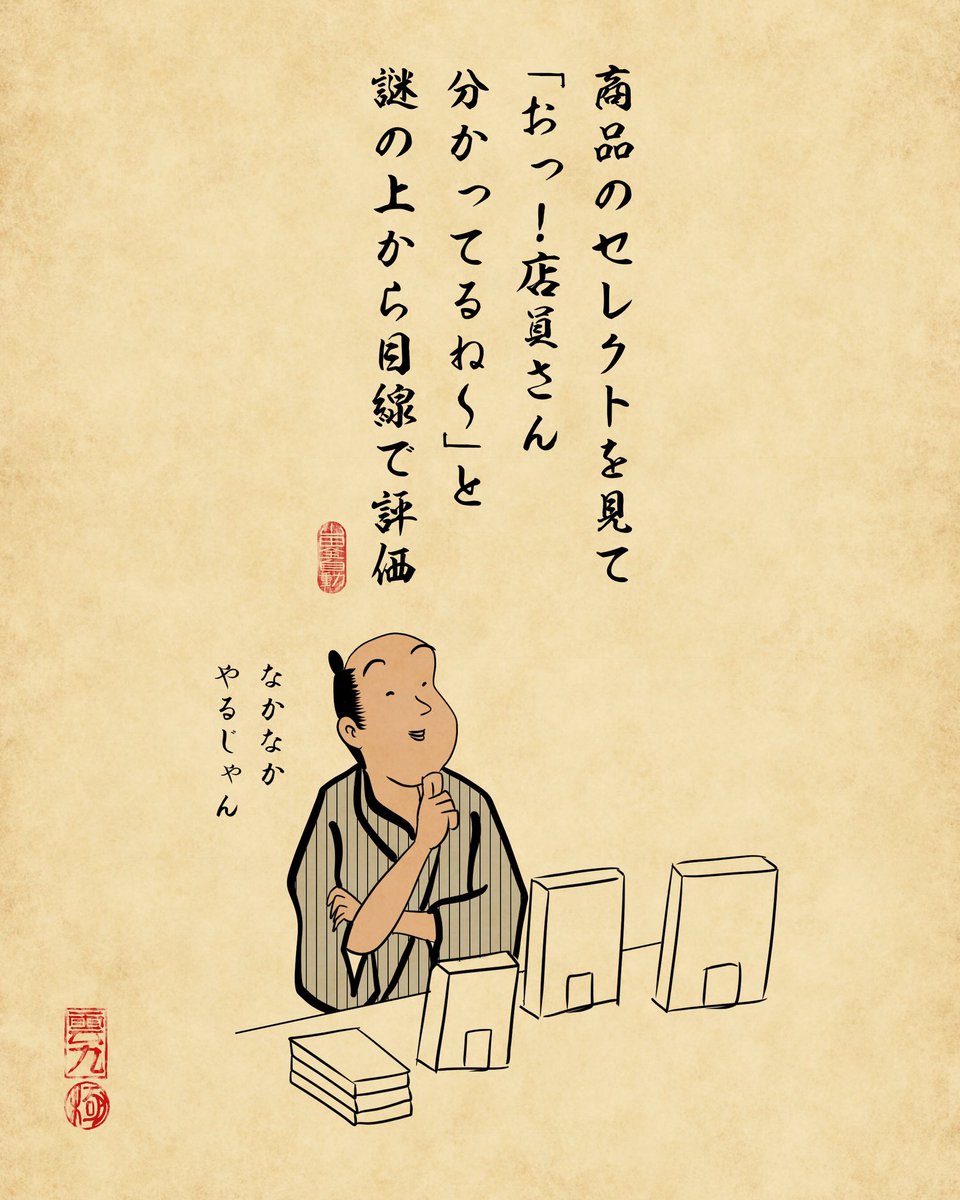 商品のセレクトを見て
「おっ！店員さん
分かってるね〜」と
謎の上から目線で評価
なかなか
やるじゃん
雲九
極